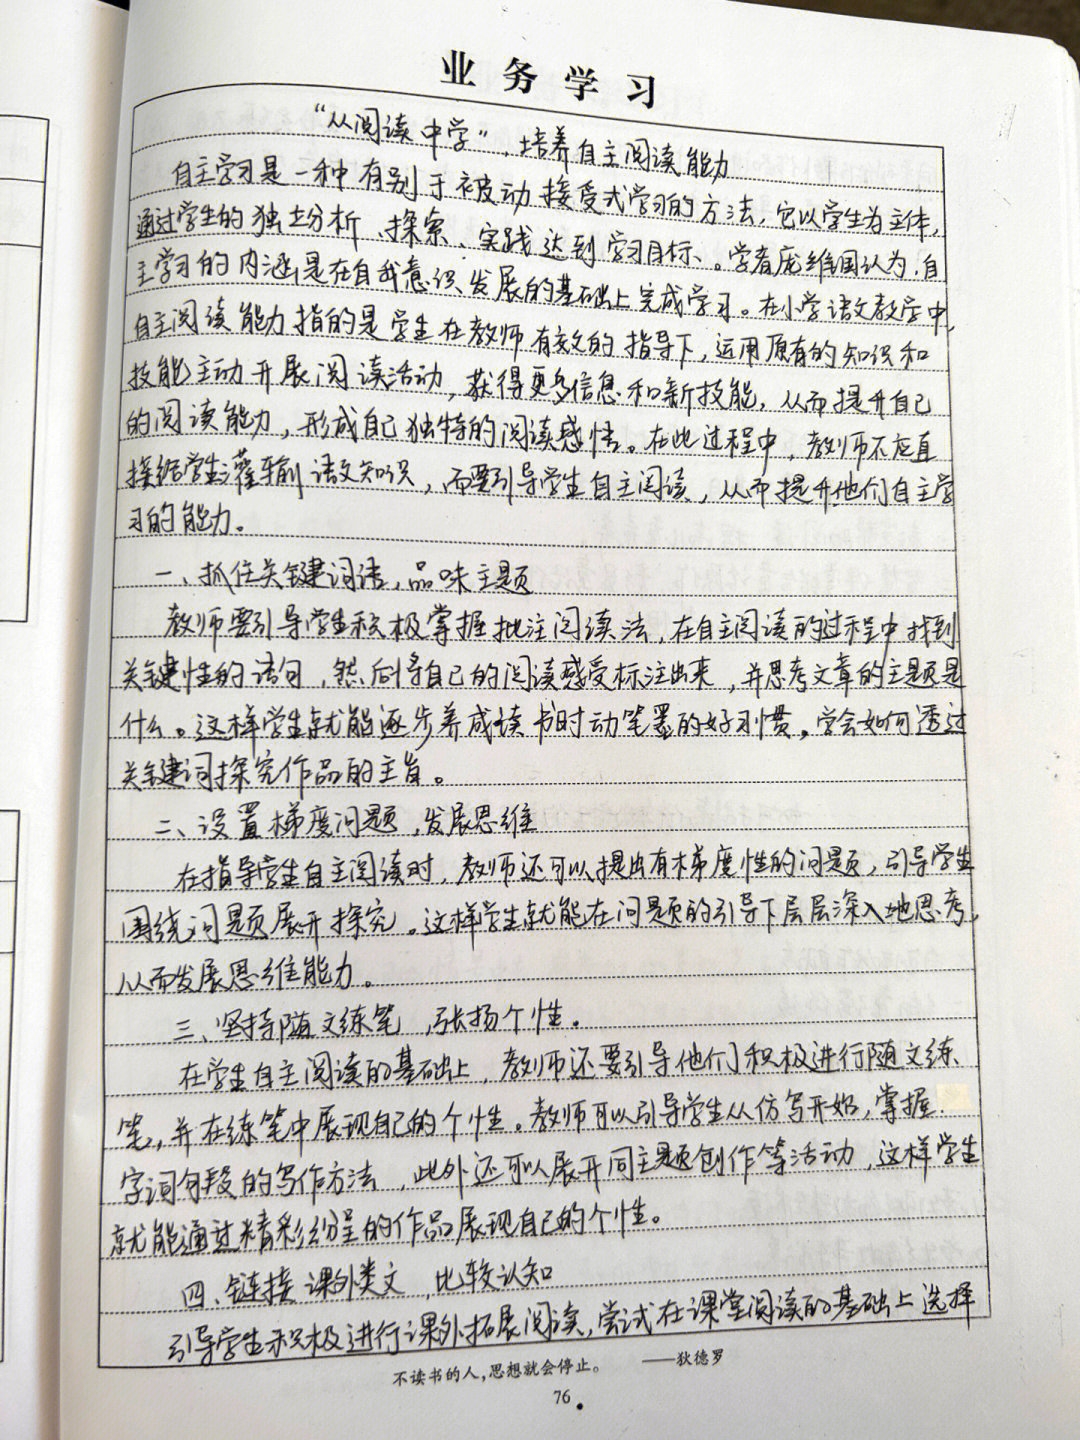 业务学习
“从阅读中学”,培养自主阅读能力
自主学习是一种有别于被动接受式学习的方法,它以学生为主体,
通过学生的独立分析、探索、实践达到学习目标。学者庞维国认为,自
主学习的内涵是在自我意识发展的基础上完成学习。在小学语文教学中,
自主阅读能力指的是学生在教师有效的指导下,运用原有的知识和
技能主动开展阅读活动,获得更多信息和新技能,从而提升自己
的阅读能力,形成自己独特的阅读感悟。在此过程中,教师不应直
接给学生灌输语文知识,而要引导学生自主阅读,从而提升他们自主学
习的能力。
一、抓住关键词语,品味主题
教师要引导学生积极掌握批注阅读法,在自主阅读的过程中找到
关键性的语句,然后将自己的阅读感受标注出来,并思考文章的主题是
什么。这样学生就能逐步养成读书时动笔墨的好习惯,学会如何透过
关键词探究作品的主旨。
二、设置梯度问题,发展思维
在指导学生自主阅读时,教师还可以提出有梯度性的问题,引导学生
围绕问题展开探究。这样学生就能在问题的引导下层层深入地思考,
从而发展思维能力。
三、坚持随文练笔,张扬个性。
在学生自主阅读的基础上,教师还要引导他们积极进行随文练
笔,并在练笔中展现自己的个性。教师可以引导学生从仿写开始,掌握
字词句段的写作方法,此外还可以展开同主题创作等活动,这样学生
就能通过精彩纷呈的作品展现自己的个性。
四、链接课外类文,比较认知
引导学生积极进行课外拓展阅读,尝试在课堂阅读的基础上选择
不读书的人,思想就会停止。 ——狄德罗
76